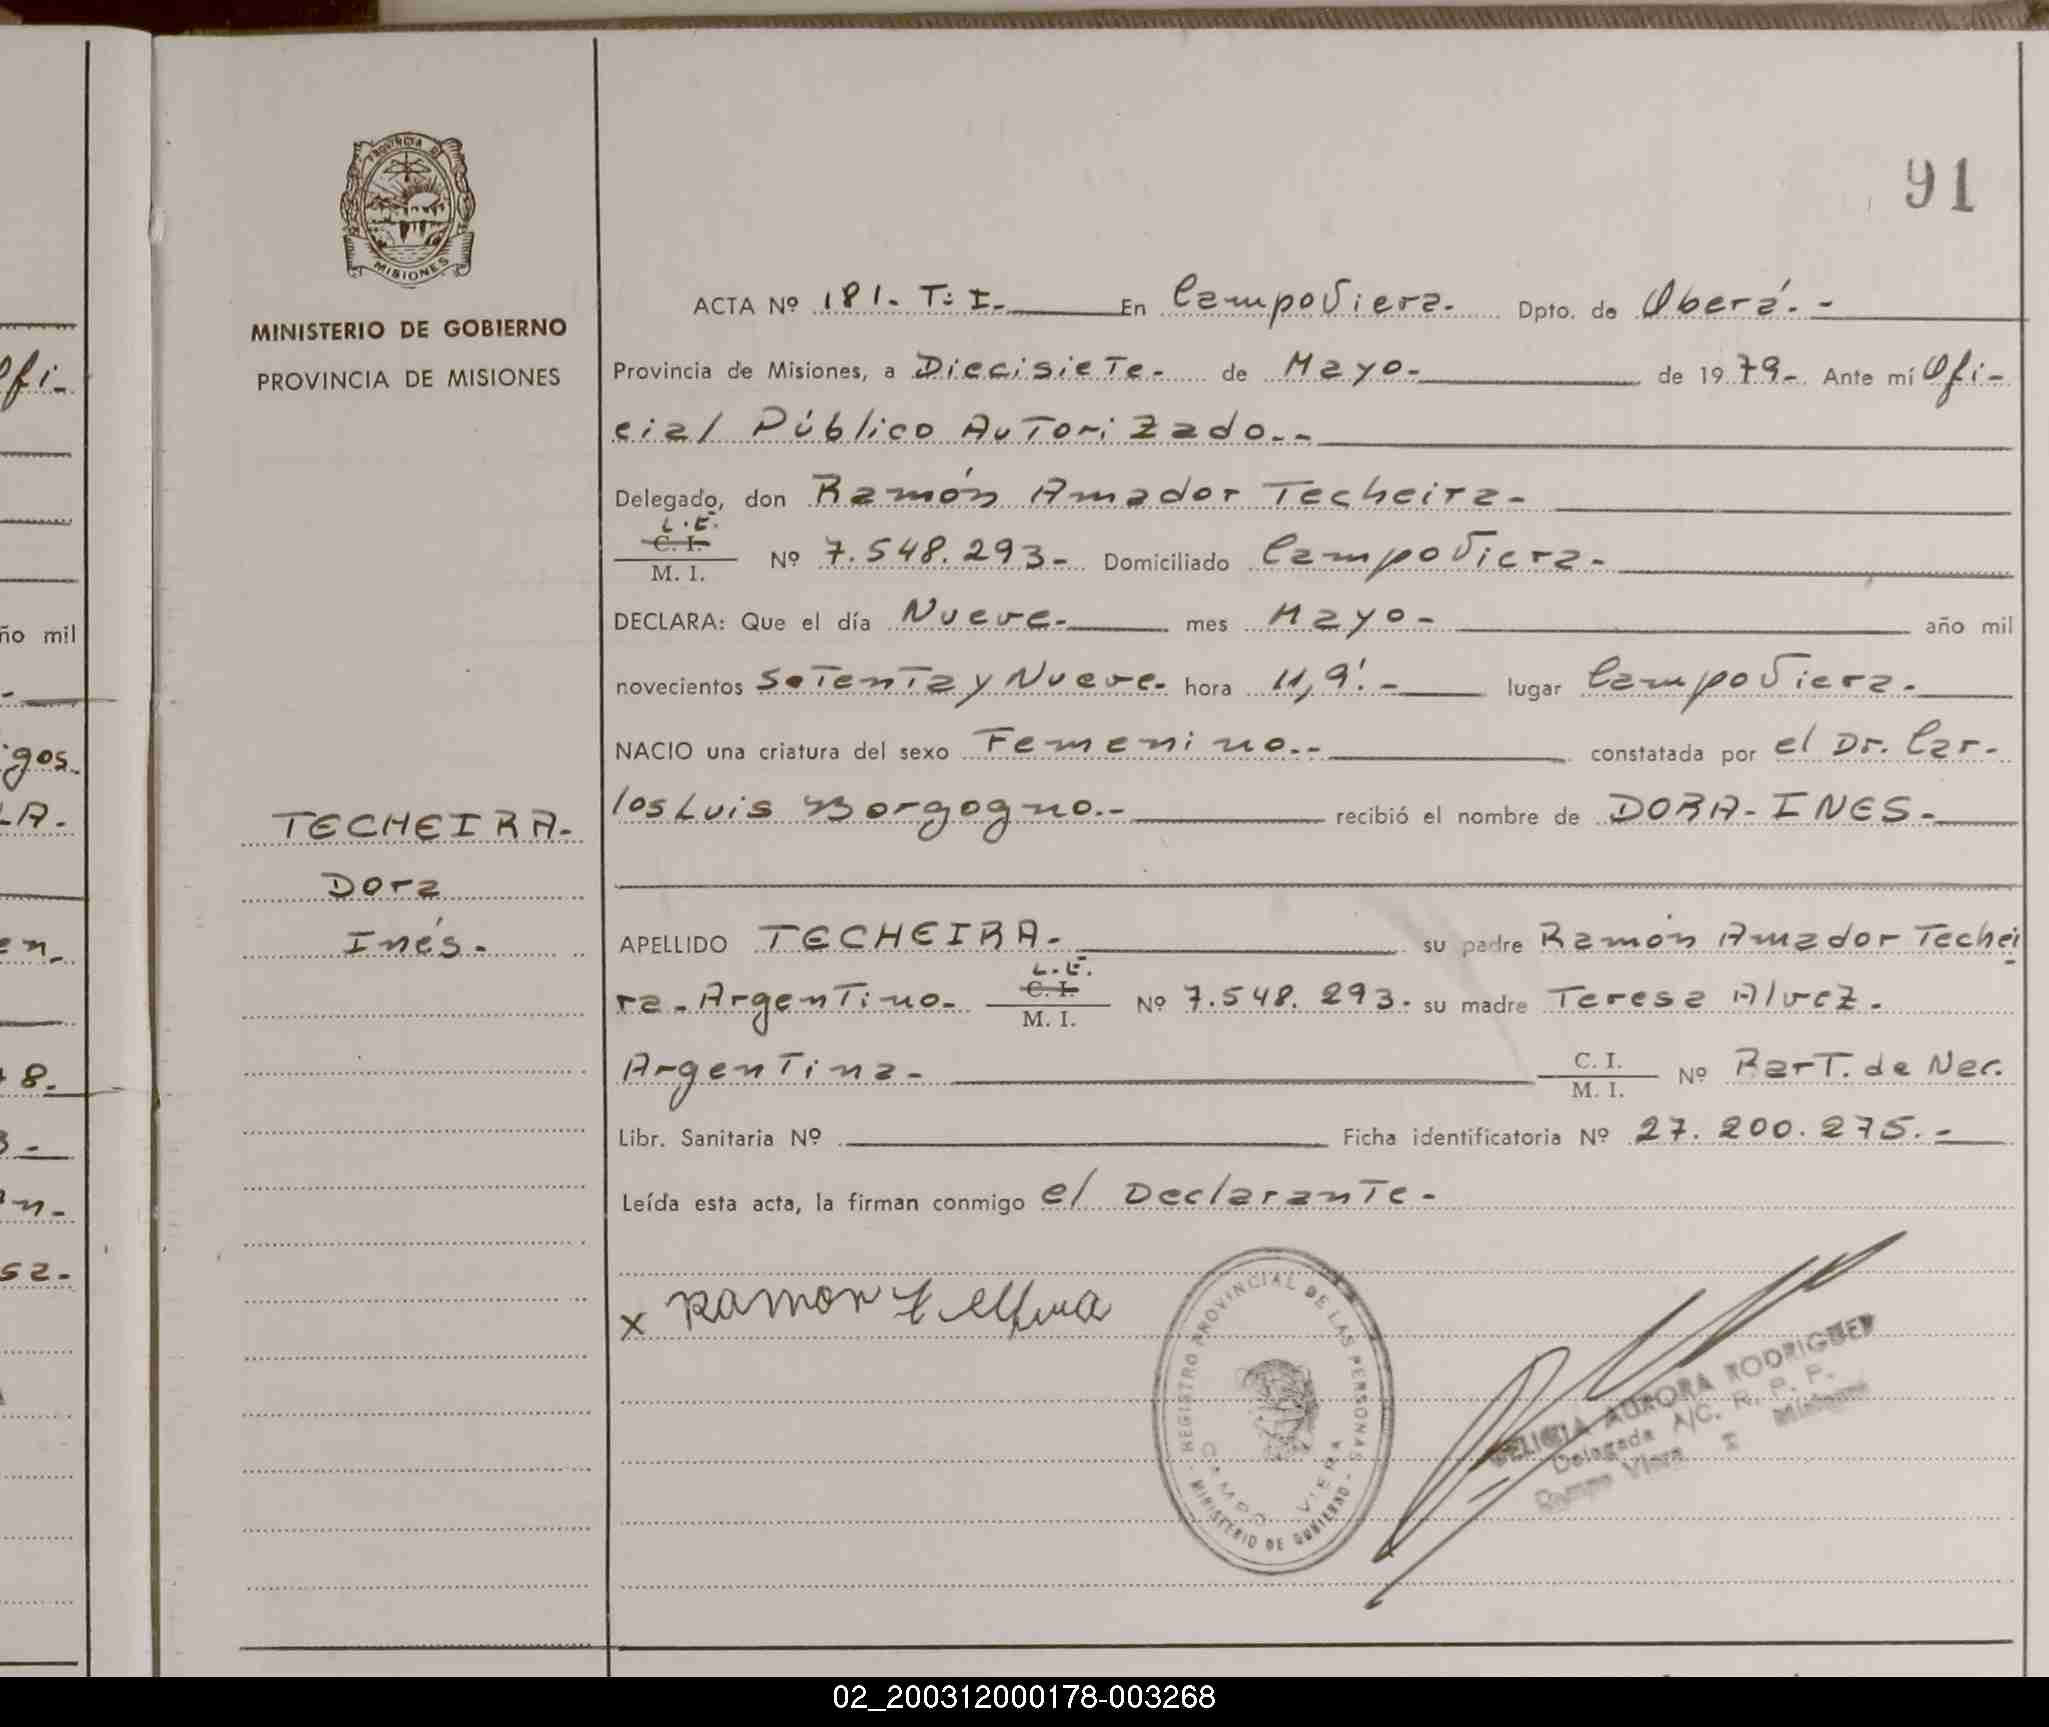 91
PROVINCIA DE
MISIONES
MINISTERIO DE GOBIERNO
PROVINCIA DE MISIONES
TECHEIRA-
Dora
Inés.-
ACTA Nº 181. T: I. En CampoViera. Dpto. de Oberá. -
Provincia de Misiones, a Diecisiete- de Mayo- de 1979- Ante mí Ofi-
cial Público Autorizado.-
Delegado, don Ramón Amador Techeira-
L.E.
C. I.
M. I. Nº 7.548.293- Domiciliado CampoViera-
DECLARA: Que el día Nueve- mes Mayo- año mil
novecientos Setenta y Nueve- hora 11,9'.- lugar CampoViera-
NACIO una criatura del sexo Femenino.- constatada por el Dr. Car-
los Luis Borgogno.- recibió el nombre de DORA-INES-
APELLIDO TECHEIRA- su padre Ramón Amador Techei
ra- Argentino- L.E. C. I. M. I. Nº 7.548.293. su madre Teresa Alvez.
Argentina- C. I. M. I. Nº Part. de Nac.
Libr. Sanitaria Nº Ficha identificatoria Nº 27.200.275.-
Leída esta acta, la firman conmigo el Declarante-
x Ramon
REGISTRO PROVINCIAL DE LAS PERSONAS
- MINISTERIO DE GOBIERNO -
CAMPO VIERA
AURORA RODRIGUEZ
Delegada A/C. R. P. P.
Campo Viera Misiones
ño mil
igos.
02_200312000178-003268